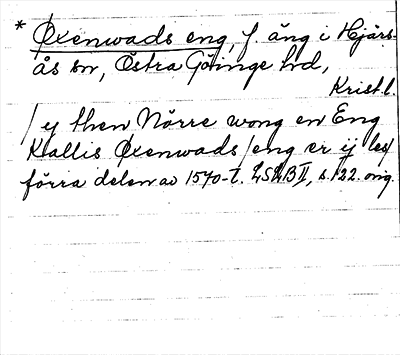 * Øxenwads eng, f. äng i Hjärs-
ås sn, Östra Göinge hd,
Krist.l.
/ y then Nörre wong en Eng
Kallis Øxenwads/eng er ij les/
förra delen av 1570-t. LSLB II, s. 122. orig.